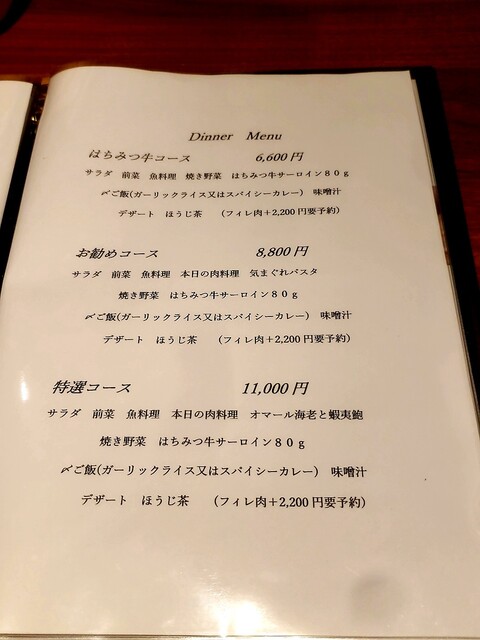 Dinner Menu
はちみつ牛コース 6,600円
サラダ 前菜 魚料理 焼き野菜 はちみつ牛サーロイン80g
〆ご飯(ガーリックライス又はスパイシーカレー) 味噌汁
デザート ほうじ茶 (フィレ肉+2,200円要予約)
お勧めコース 8,800円
サラダ 前菜 魚料理 本日の肉料理 気まぐれパスタ
焼き野菜 はちみつ牛サーロイン80g
〆ご飯(ガーリックライス又はスパイシーカレー) 味噌汁
デザート ほうじ茶 (フィレ肉+2,200円要予約)
特選コース 11,000円
サラダ 前菜 魚料理 本日の肉料理 オマール海老と蝦夷鮑
焼き野菜 はちみつ牛サーロイン80g
〆ご飯(ガーリックライス又はスパイシーカレー) 味噌汁
デザート ほうじ茶 (フィレ肉+2,200円要予約)